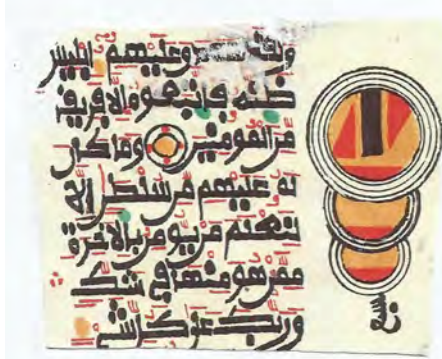 ولقد صدق عليهم ابليس
ظنه فاتبعوه الا فريقا
من المومنين وما كان
له عليهم من سلطن الا
لنعلم من يومن بالاخرة
ممن هو منها في شك
وربك على كل شي
سبع